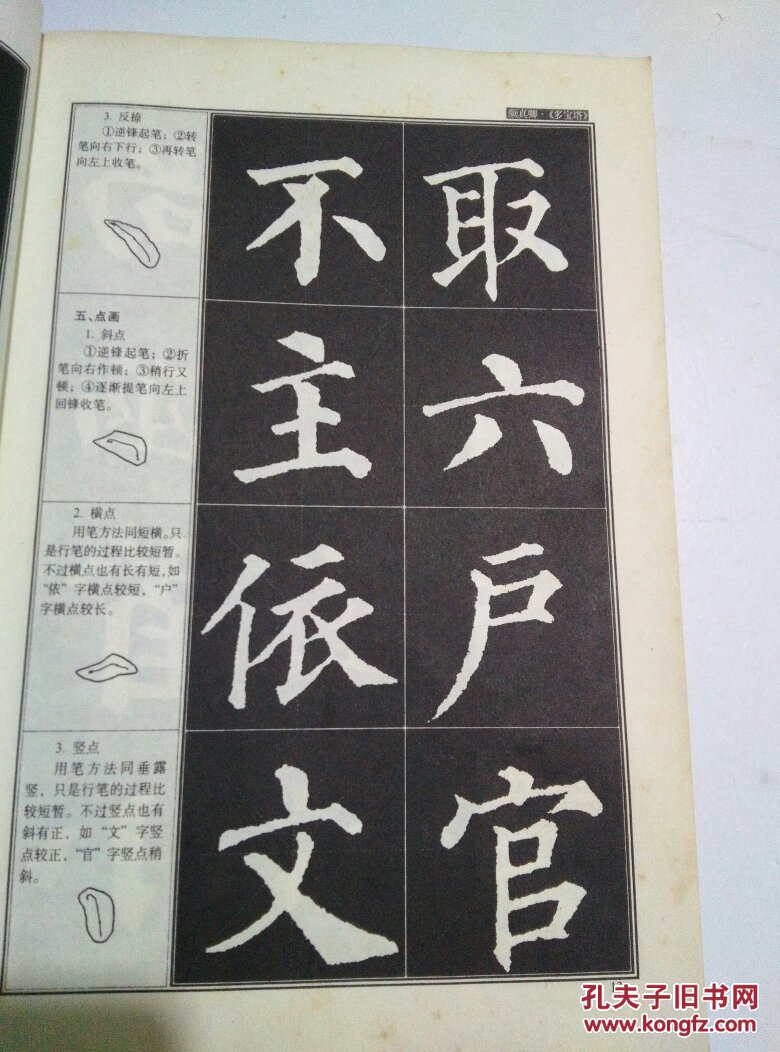 颜真卿·《多宝塔》
3. 反捺
①逆锋起笔；②转
笔向右下行；③再转笔
向左上收笔。
不 取
五、点画
1. 斜点
①逆锋起笔；②折
笔向右作顿；③稍行又
顿；④逐渐提笔向左上
回锋收笔。
主 六
2. 横点
用笔方法同短横。只
是行笔的过程比较短暂。
不过横点也有长有短，如
“依”字横点较短，“户”
字横点较长。
依 户
3. 竖点
用笔方法同垂露
竖，只是行笔的过程比
较短暂。不过竖点也有
斜有正，如“文”字竖
点较正，“官”字竖点稍
斜。
文 官
孔夫子旧书网
www.kongfz.com